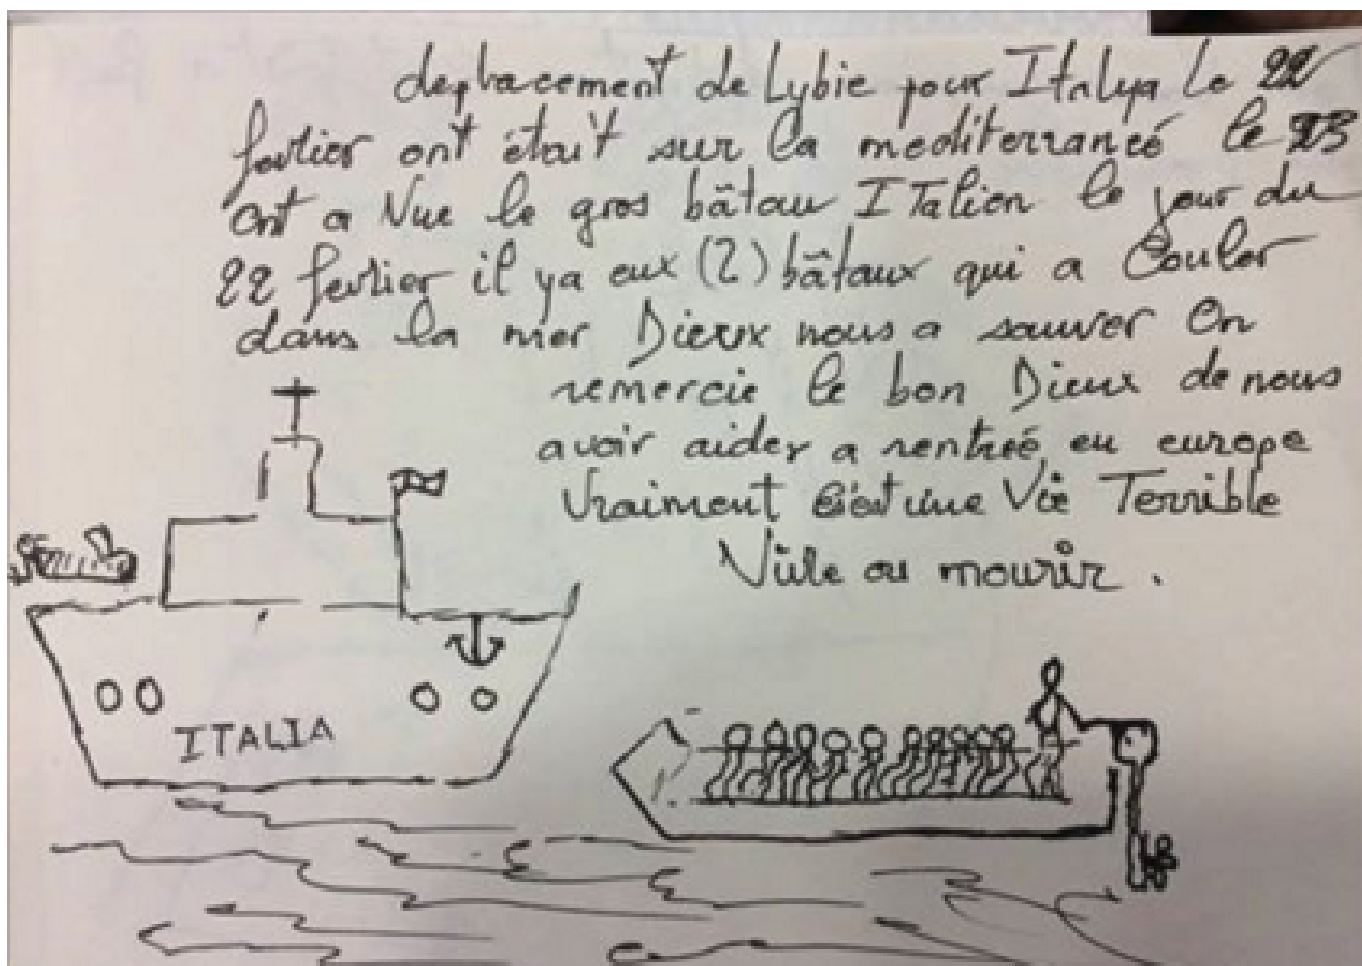 deplacement de Lybie pour Italya le 22
fevrier ont était sur la mediterraneé le 23
ont a Vue le gros bâtau ITalien le jour du
22 fevrier il ya eux (2) bâtaux qui a Couler
dans la mer Dieux nous a sauver On
remercie le bon Dieux de nous
avoir aider a rentreé en europe
Vraiment c'est une Vie Terrible
Vivre ou mourir .
ITALIA